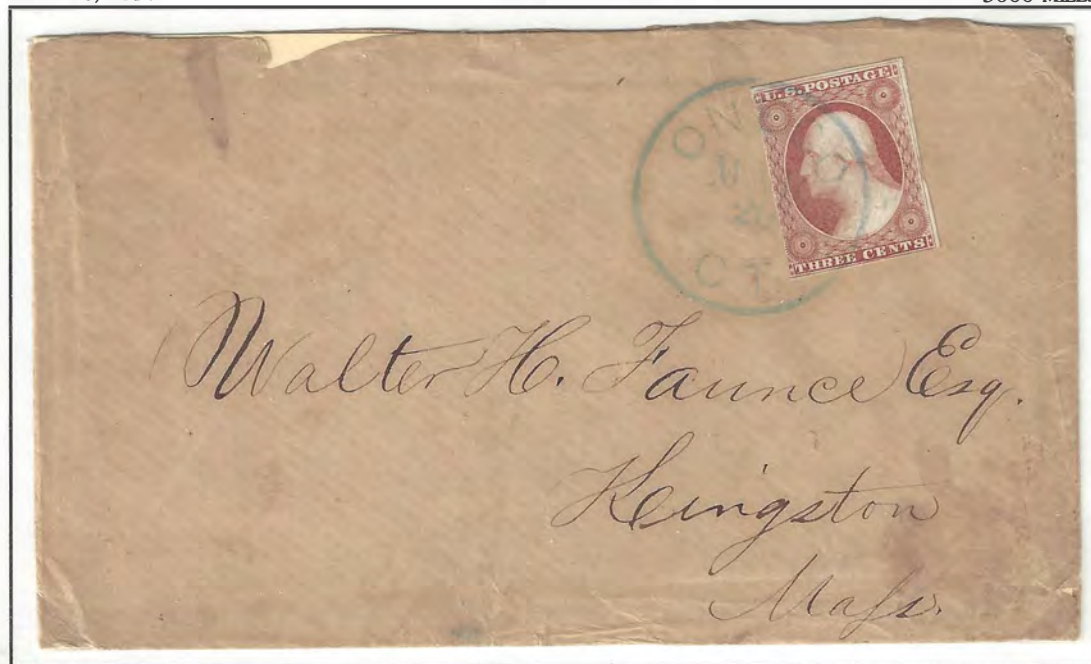 U.S. POSTAGE
THREE CENTS
CT
Walter H. Faunce Esq.
Kingston
Mass.